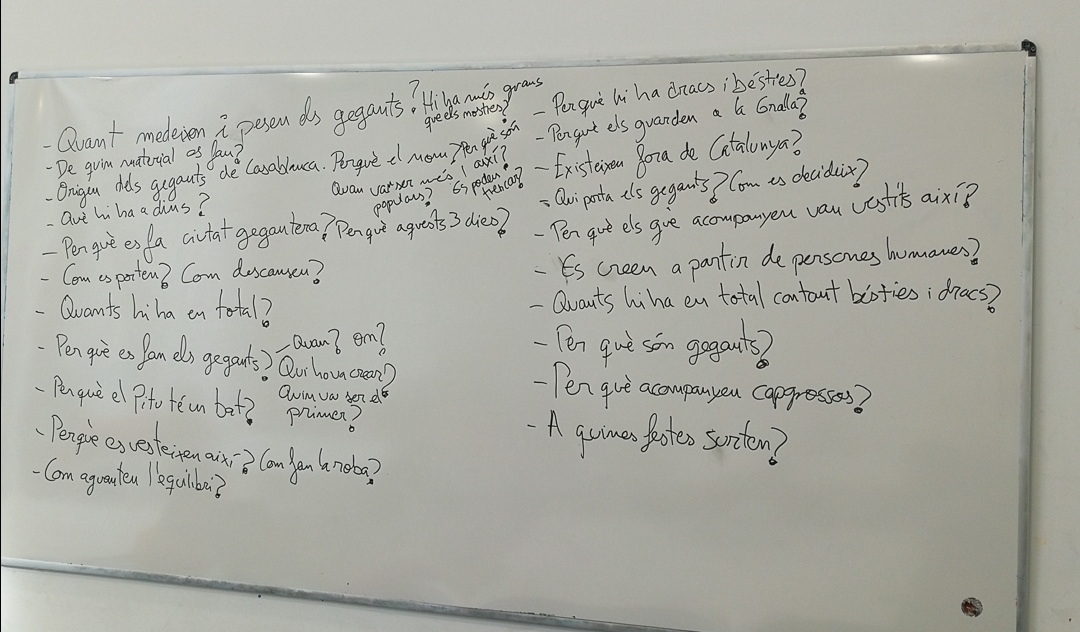 - Quant medeixen i pesen els gegants? Hi ha més grans
que els mostres?
- De quin material es fan?
- Origen dels gegants de Casablanca. Perquè el nom? Per què són
així?
Quan van ser més
populars? Es poden
trencar?
- Què hi ha a dins?
- Per què es fa ciutat gegantera? Perquè aquests 3 dies?
- Com es porten? Com descansen?
- Quants hi ha en total?
- Per què es fan els gegants? - Quan? On?
Qui ho va crear?
Quin va ser el
primer?
- Perquè el Pitu té un bat?
- Perquè es vesteixen així? Com fan la roba?
- Com aguanten l'equilibri?
- Per què hi ha dracs i bésties?
- Perquè els guarden a la Gralla?
- Existeixen fora de Catalunya?
- Qui porta els gegants? Com es decideix?
- Per què els que acompanyen van vestits així?
- Es creen a partir de persones humanes?
- Quants hi ha en total contant bésties i dracs?
- Per què són gegants?
- Per què acompanyen capgrossos?
- A quines festes surten?